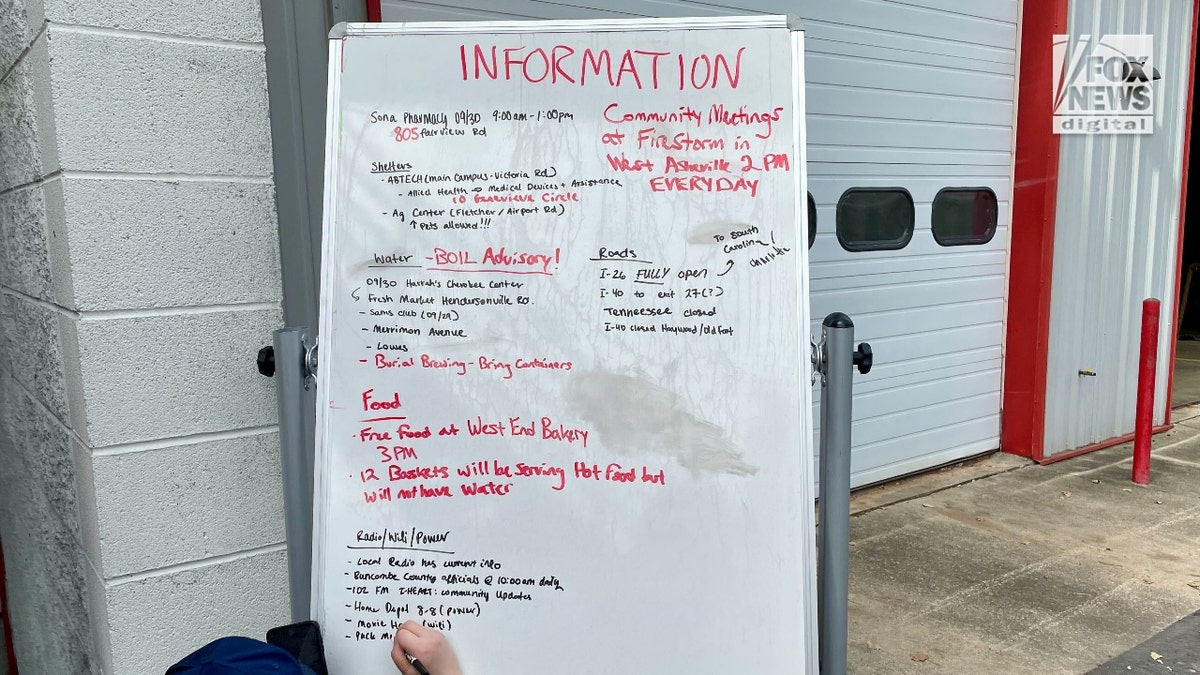 INFORMATION
Sona Pharmacy 09/30 9:00am-1:00pm
805 Fairview Rd
Community Meetings
at Firestorm in
West Asheville 2 PM
EVERYDAY
Shelters
- ABTECH (main Campus - Victoria Rd)
- Allied Health → Medical Devices + Assistance
10 Genevieve Circle
- Ag Center (Fletcher / Airport Rd)
↑ Pets allowed!!!
Water - BOIL Advisory!
09/30 Harrah's Cherokee Center
Fresh Market Hendersonville Rd.
- Sams club (09/29)
- Merrimon Avenue
- Lowes
- Burial Brewing - Bring Containers
Roads
I-26 FULLY open
To South
Carolina!
Charlotte
I-40 to exit 27(?)
Tennessee closed
I-40 closed Haywood/Old Fort
Food
· Free food at West End Bakery
3PM
· 12 Baskets will be serving Hot Food but
will not have Water
Radio/Wifi/Power
- Local Radio has current info
- Buncombe County officials @ 10:00am daily
- 102 FM I-HEART: community updates
- Home Depot 8-8 (power)
- Moxie (wifi)
- Pack
FOX
NEWS
digital